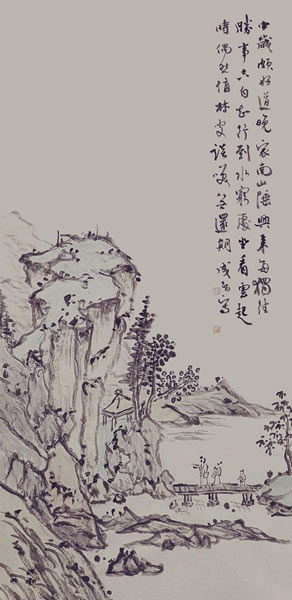 中歲頗好道晚家南山陲興來每獨往
勝事空自知行到水窮處坐看雲起
時偶然值林叟談笑無還期